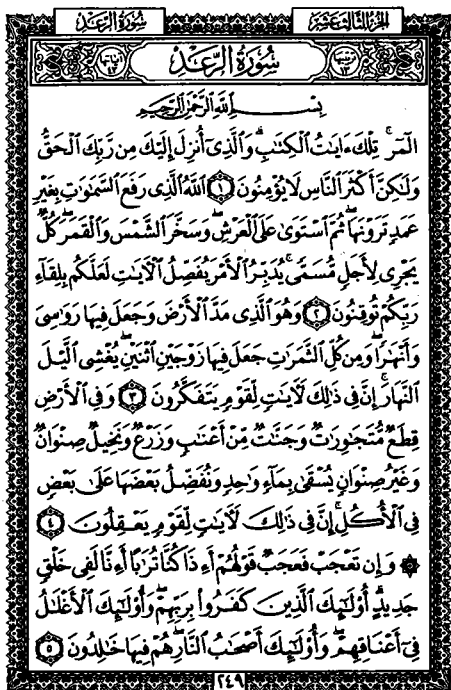 سُورَةُ الرَّعْدِ الجُزْءُ الثَّالِثَ عَشَرَ
سُورَةُ الرَّعْدِ
بِسْمِ اللَّهِ الرَّحْمَٰنِ الرَّحِيمِ
الٓمٓرۚ تِلْكَ ءَايَٰتُ ٱلْكِتَٰبِۗ وَٱلَّذِىٓ أُنزِلَ إِلَيْكَ مِن رَّبِّكَ ٱلْحَقُّ
وَلَٰكِنَّ أَكْثَرَ ٱلنَّاسِ لَا يُؤْمِنُونَ ١ ٱللَّهُ ٱلَّذِى رَفَعَ ٱلسَّمَٰوَٰتِ بِغَيْرِ
عَمَدٍ تَرَوْنَهَاۖ ثُمَّ ٱسْتَوَىٰ عَلَى ٱلْعَرْشِۖ وَسَخَّرَ ٱلشَّمْسَ وَٱلْقَمَرَۖ كُلٌّ
يَجْرِى لِأَجَلٍ مُّسَمًّىۚ يُدَبِّرُ ٱلْأَمْرَ يُفَصِّلُ ٱلْءَايَٰتِ لَعَلَّكُم بِلِقَآءِ
رَبِّكُمْ تُوقِنُونَ ٢ وَهُوَ ٱلَّذِى مَدَّ ٱلْأَرْضَ وَجَعَلَ فِيهَا رَوَٰسِىَ
وَأَنْهَٰرًاۖ وَمِن كُلِّ ٱلثَّمَرَٰتِ جَعَلَ فِيهَا زَوْجَيْنِ ٱثْنَيْنِۖ يُغْشِى ٱلَّيْلَ
ٱلنَّهَارَۚ إِنَّ فِى ذَٰلِكَ لَءَايَٰتٍ لِّقَوْمٍ يَتَفَكَّرُونَ ٣ وَفِى ٱلْأَرْضِ
قِطَعٌ مُّتَجَٰوِرَٰتٌ وَجَنَّٰتٌ مِّنْ أَعْنَٰبٍ وَزَرْعٌ وَنَخِيلٌ صِنْوَانٌ
وَغَيْرُ صِنْوَانٍ يُسْقَىٰ بِمَآءٍ وَٰحِدٍ وَنُفَضِّلُ بَعْضَهَا عَلَىٰ بَعْضٍ
فِى ٱلْأُكُلِۚ إِنَّ فِى ذَٰلِكَ لَءَايَٰتٍ لِّقَوْمٍ يَعْقِلُونَ ٤
۞ وَإِن تَعْجَبْ فَعَجَبٌ قَوْلُهُمْ أَءِذَا كُنَّا تُرَٰبًا أَءِنَّا لَفِى خَلْقٍ
جَدِيدٍۗ أُو۟لَٰٓئِكَ ٱلَّذِينَ كَفَرُوا۟ بِرَبِّهِمْۖ وَأُو۟لَٰٓئِكَ ٱلْأَغْلَٰلُ
فِىٓ أَعْنَاقِهِمْۖ وَأُو۟لَٰٓئِكَ أَصْحَٰبُ ٱلنَّارِۖ هُمْ فِيهَا خَٰلِدُونَ ٥
٢٤٩